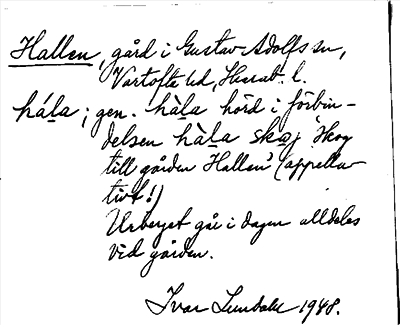 Hallen, gård i Gustav Adolfs sn,
Vartofta hd, Skarab. l.
hála; gen. hàla hörd i förbin-
delsen hàla skɑj 'skog
till gården Hallen' (appella-
tivt!)
Urberget går i dagen alldeles
vid gården.
Ivar Lundahl 1948.